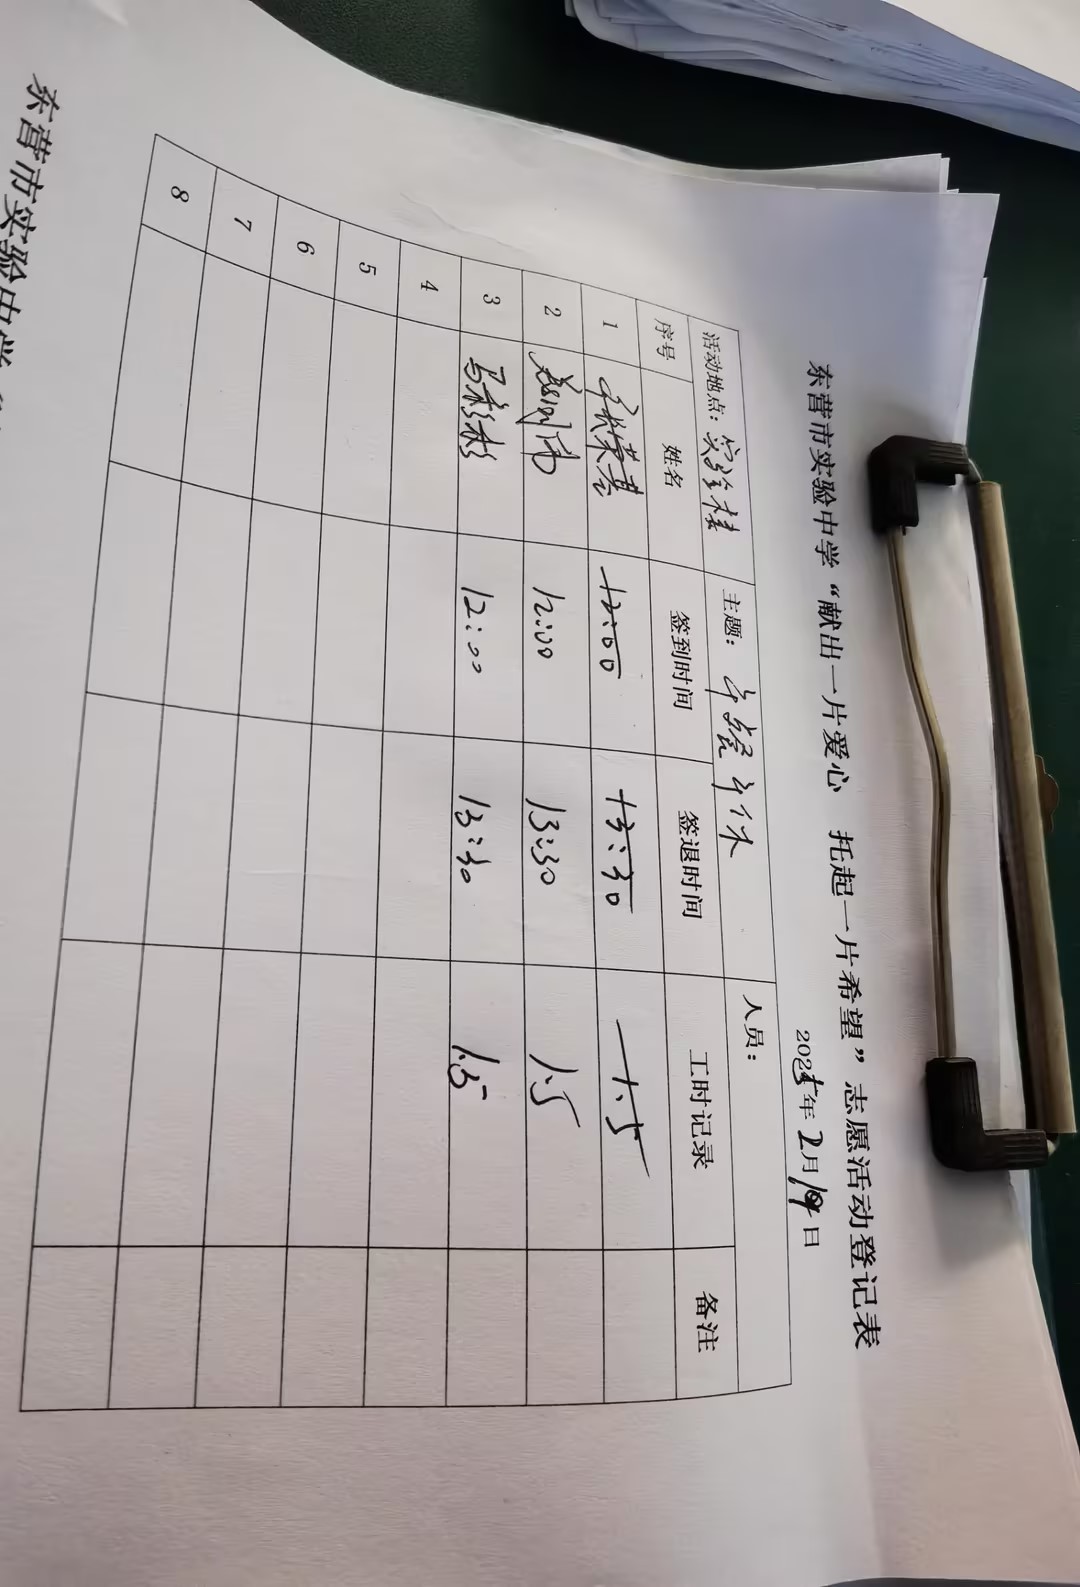 东营市实验中学“献出一片爱心 托起一片希望”志愿活动登记表
2025年2月19日
活动地点：实验楼 主题：午餐午休 人员：
序号 姓名 签到时间 签退时间 工时记录 备注
1 12:00 13:30 1.5
2 12:00 13:30 1.5
3 马彬彬 12:00 13:30 1.5
4
5
6
7
8
东营市实验中学